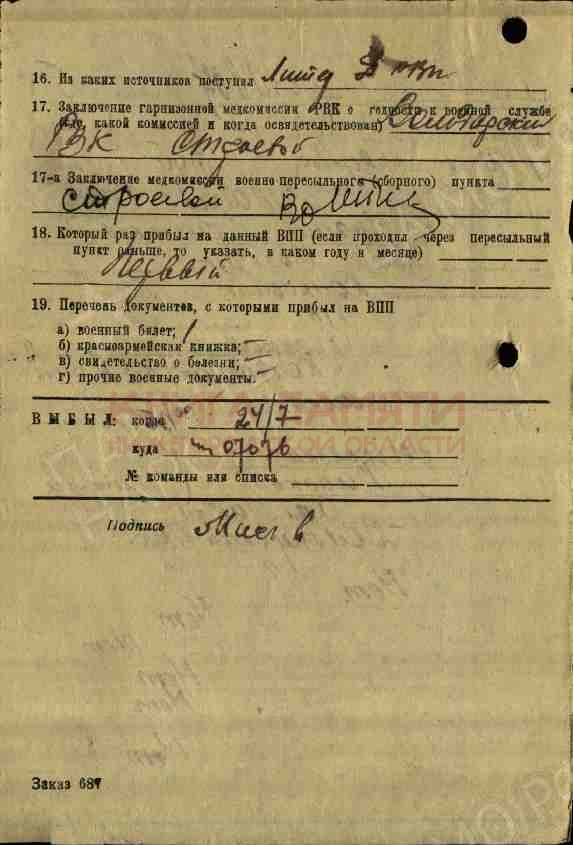 16. Из каких источников поступил
17. Заключение гарнизонной медкомиссии РВК о годности к военной службе
(где, какой комиссией и когда освидетельствован)
РВК Строевой
17-а Заключение медкомиссии военно-пересыльного (сборного) пункта
Строевой
18. Который раз прибыл на данный ВПП (если проходил через пересыльный
пункт раньше, то указать, в каком году и месяце)
Первый
19. Перечень документов, с которыми прибыл на ВПП
а) военный билет; 1
б) красноармейская книжка; —
в) свидетельство о болезни; —
г) прочие военные документы. —
КНИГА ПАМЯТИ
ВЫБЫЛ: когда 24/7
НИЖЕГОРОДСКОЙ ОБЛАСТИ
куда 07076
№ команды или списка
Подпись
Заказ 687